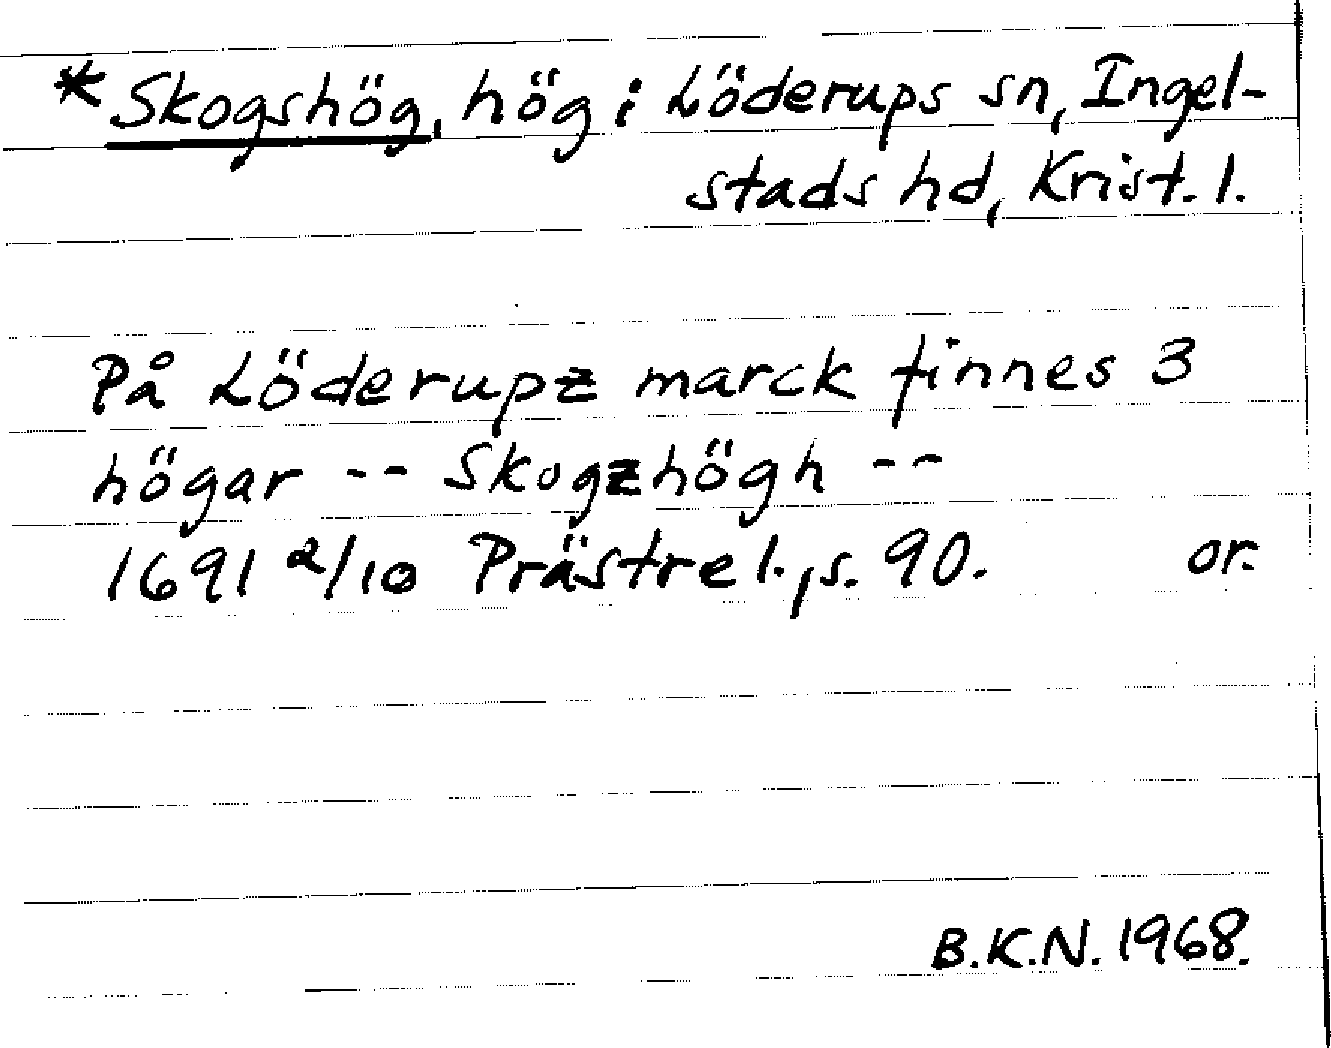 *Skogshög, hög i Löderups sn, Ingel-
stads hd, Krist. l.
På Löderupz marck finnes 3
högar -- Skogzhögh --
1691 2/10 Prästrel., s. 90. or.
B.K.N. 1968.